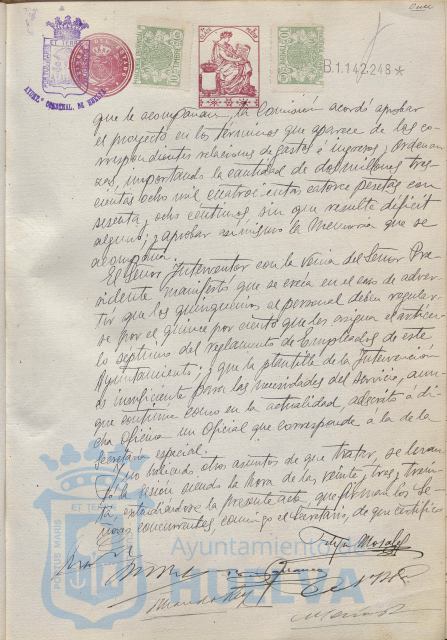 B.1.142.248*
que le acompañan, la Comisión acordó aprobar
el proyecto en los términos que aparece de las co-
rrespondientes relaciones de gastos é ingresos, y Ordenan-
zas, importando la cantidad de dos millones tres-
cientas ocho mil cuatrocientas catorce pesetas con
sesenta y ocho céntimos, sin que resulte déficit
alguno; y aprobar asimismo la Memoria que se
acompaña.
El Señor Interventor con la venia del Señor Pre-
sidente manifestó que se creía en el caso de adver-
tir que los quinquenios al personal debían regular-
se por el quince por ciento que les asigna el artícu-
lo séptimo del reglamento de Empleados de este
Ayuntamiento; y que la plantilla de la Intervención
es insuficiente para las necesidades del Servicio, aun-
que continúe como en la actualidad, adscrito a di-
cha Oficina un Oficial que corresponde a la de la
Secretaría especial.
Y no habiendo otros asuntos de que tratar, se levan-
tó la sesión siendo la hora de las veinte y tres y trein-
ta, extendiéndose la presente acta que firman los Se-
ñores concurrentes, conmigo el Secretario, de que certifico
PORTUS MARIS ET TERRE
Ayuntamiento de
HUELVA